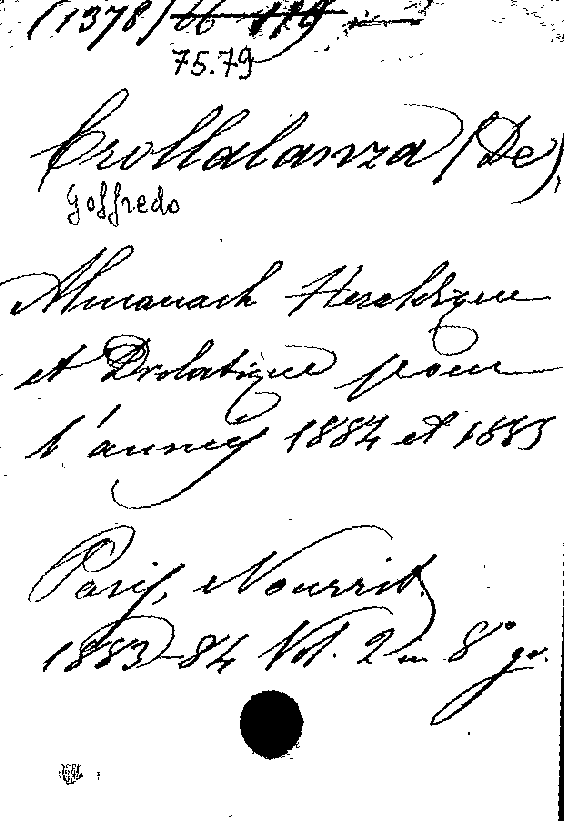 (1378)
75.79
Crollalanza (De)
Goffredo
Almanach Heraldique
et Drolatique pour
l'anney 1884 et 1885
Paris, Nourrit,
1883-84 Vol. 2 in 8° gr.